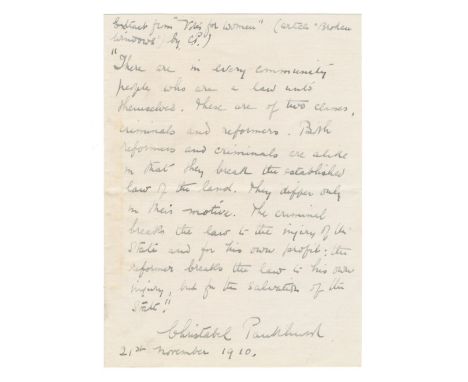 Extract from "Votes for Women" (article "Broken
Windows") by CP.)
"There are in every community
people who are a law unto
themselves. These are of two classes,
criminals and reformers. Both
reformers and criminals are alike
in that they break the established
law of the land. They differ only
in their motive. The criminal
breaks the law to the injury of the
State and for his own profit; the
reformer breaks the law to his own
injury, but for the salvation of the
State."
Christabel Pankhurst
21st November 1910.